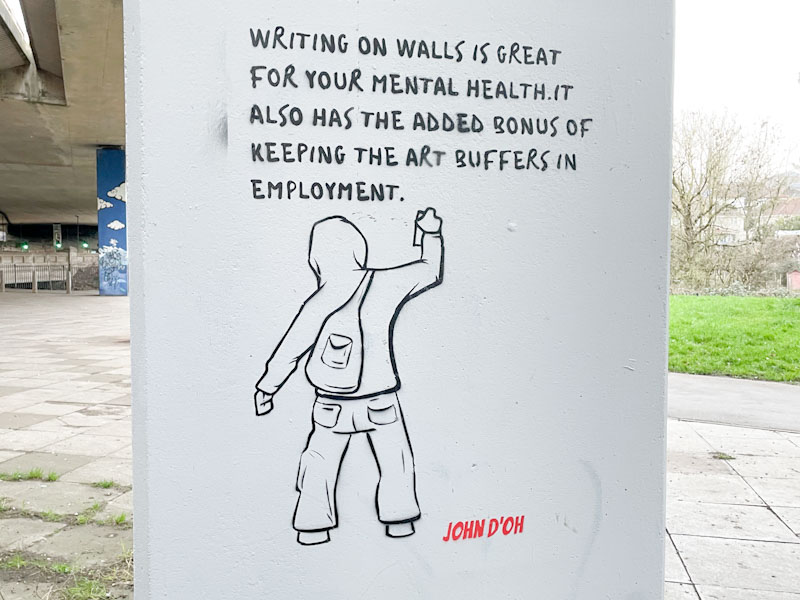 WRITING ON WALLS IS GREAT
FOR YOUR MENTAL HEALTH.IT
ALSO HAS THE ADDED BONUS OF
KEEPING THE ART BUFFERS IN
EMPLOYMENT.
JOHN D'OH